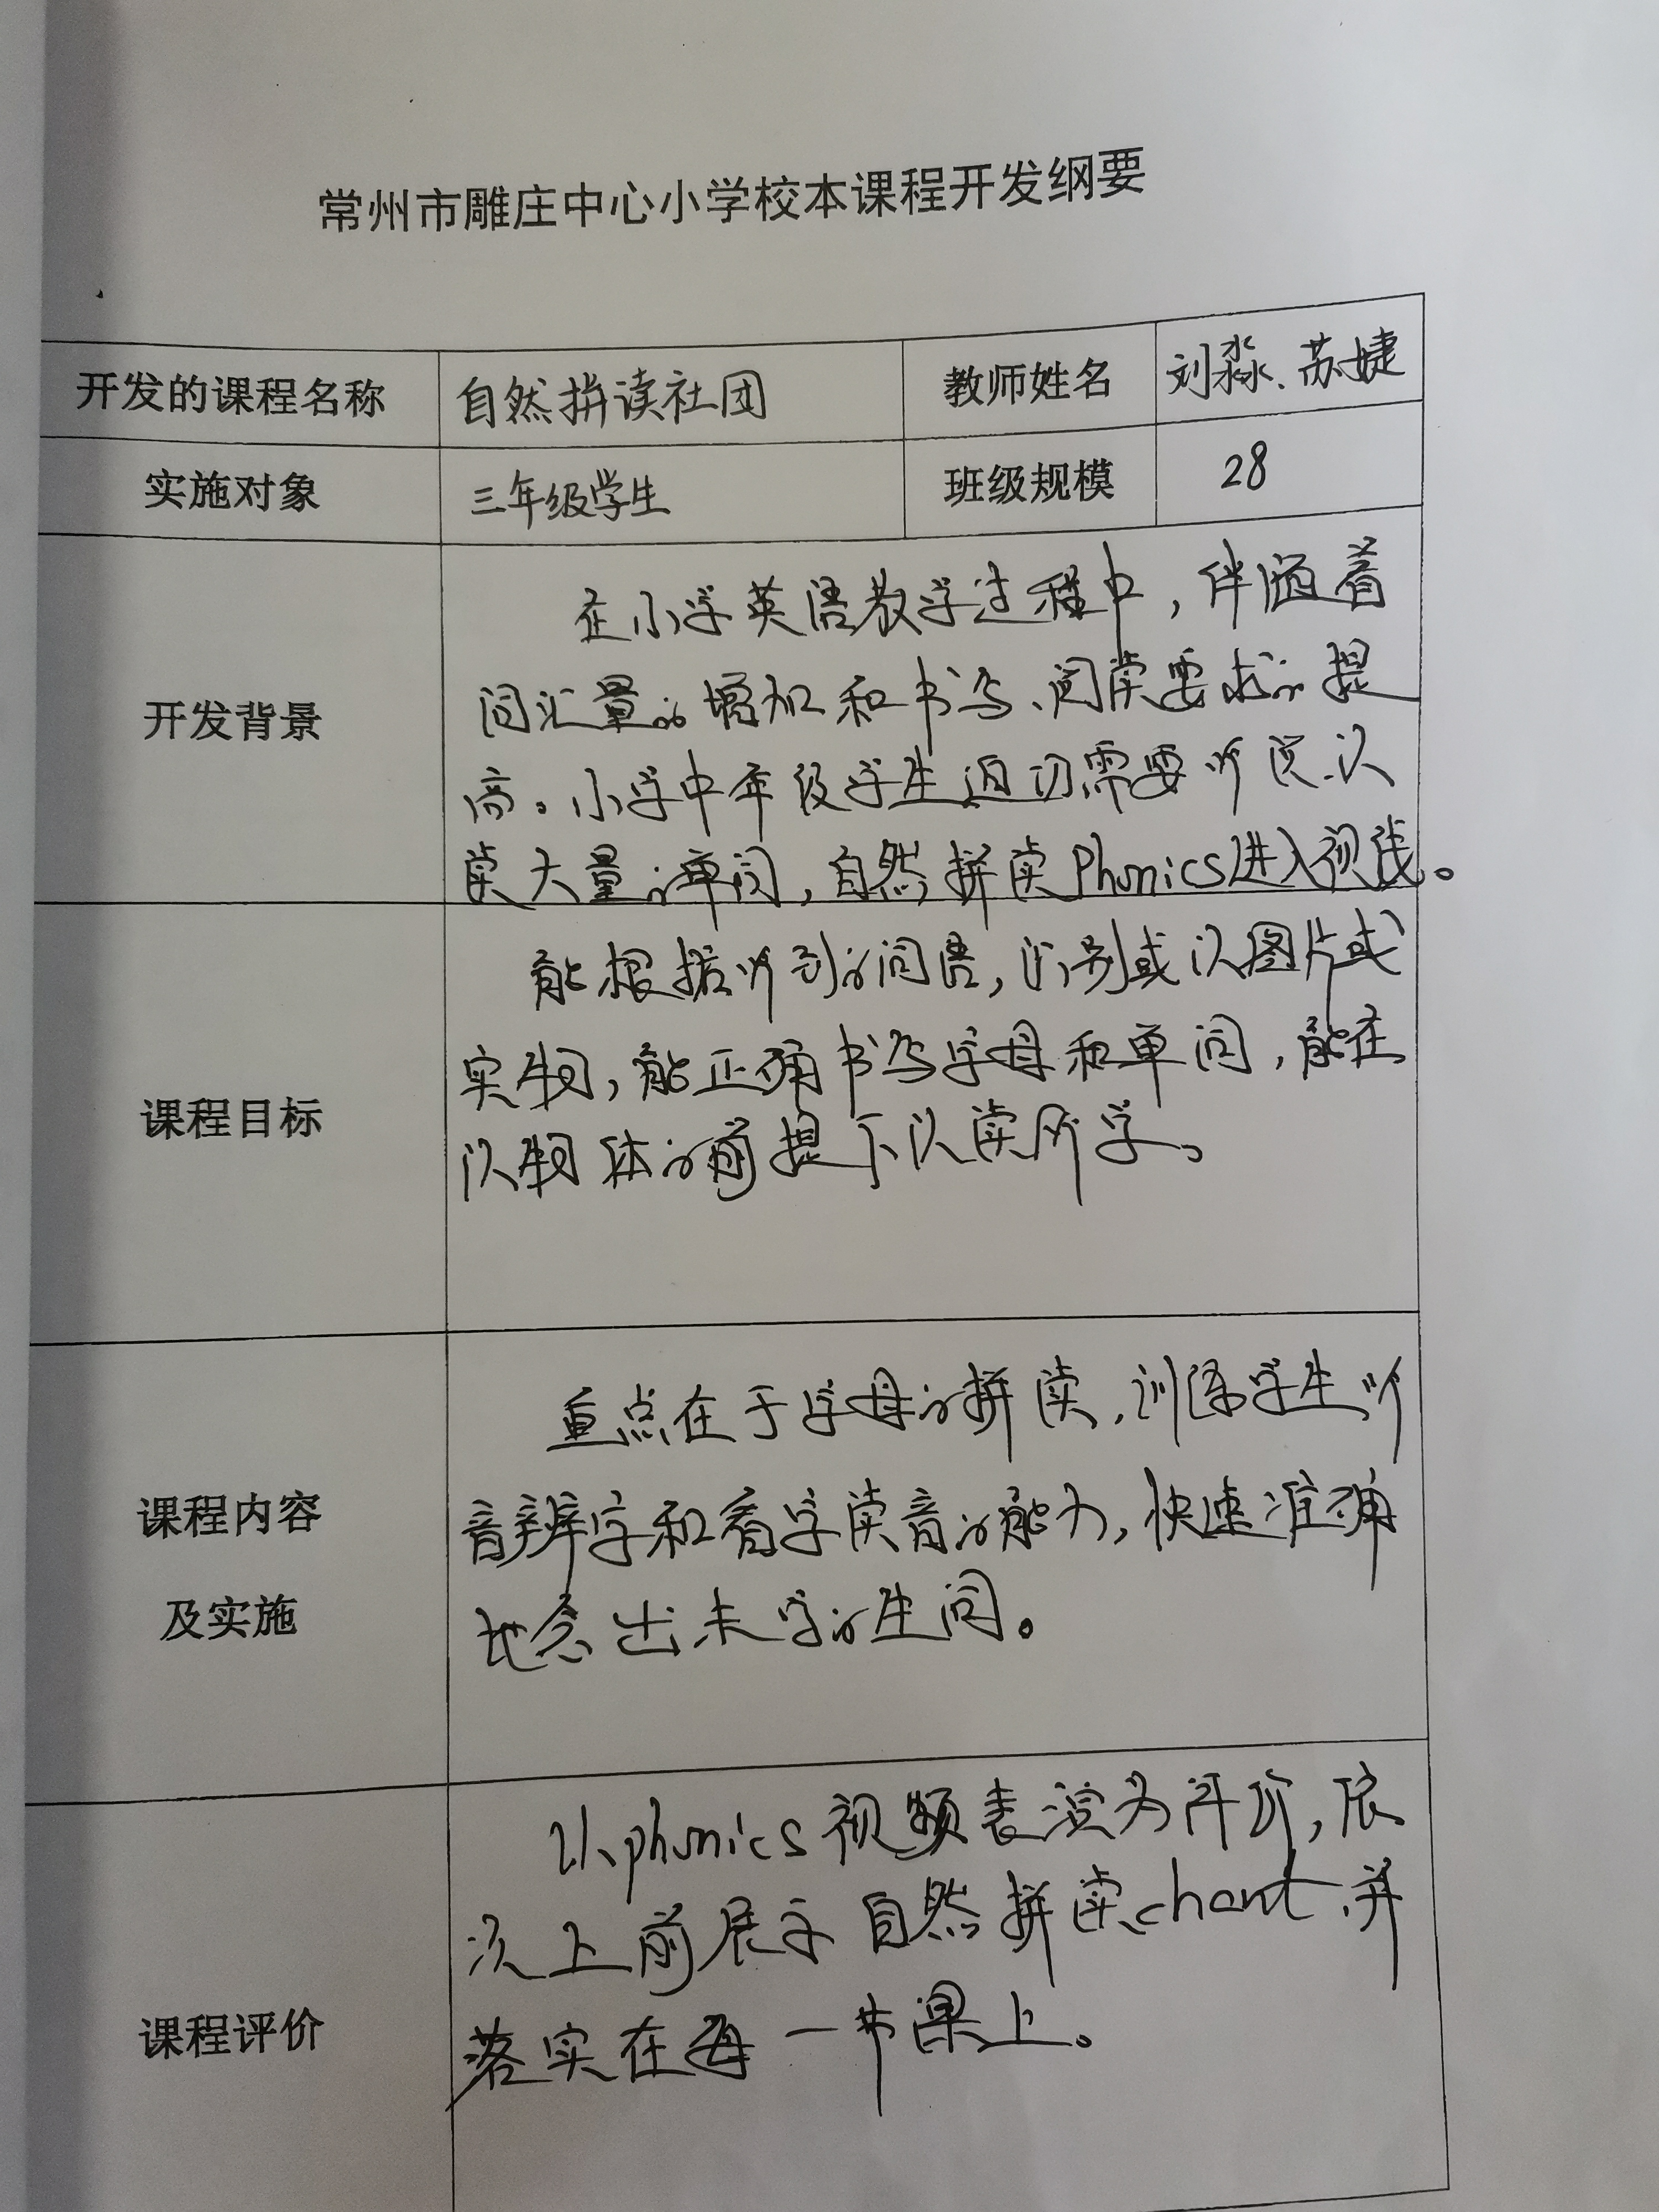 常州市雕庄中心小学校本课程开发纲要
开发的课程名称 自然拼读社团 教师姓名 刘淼、苏婕
实施对象 三年级学生 班级规模 28
开发背景
在小学英语教学过程中，伴随着
词汇量的增加和书写、阅读要求的提
高。小学中年级学生迫切需要听说认
读大量的单词，自然拼读Phonics进入视线。
课程目标
能根据听到的词语，识别或认图片或
实物，能正确书写字母和单词，能在
认物体的前提下认读所学。
课程内容
及实施
重点在于字母的拼读，训练学生听
音辨字和看字读音的能力，快速准确
地念出未学的生词。
课程评价
以phonics视频表演为评价，依
次上前展示自然拼读chant，并
落实在每一节课上。